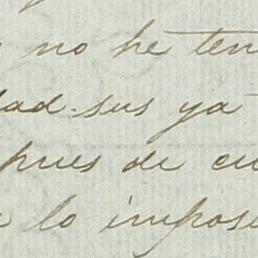 no he ten
dad. sus ya
pues de cu
lo impose